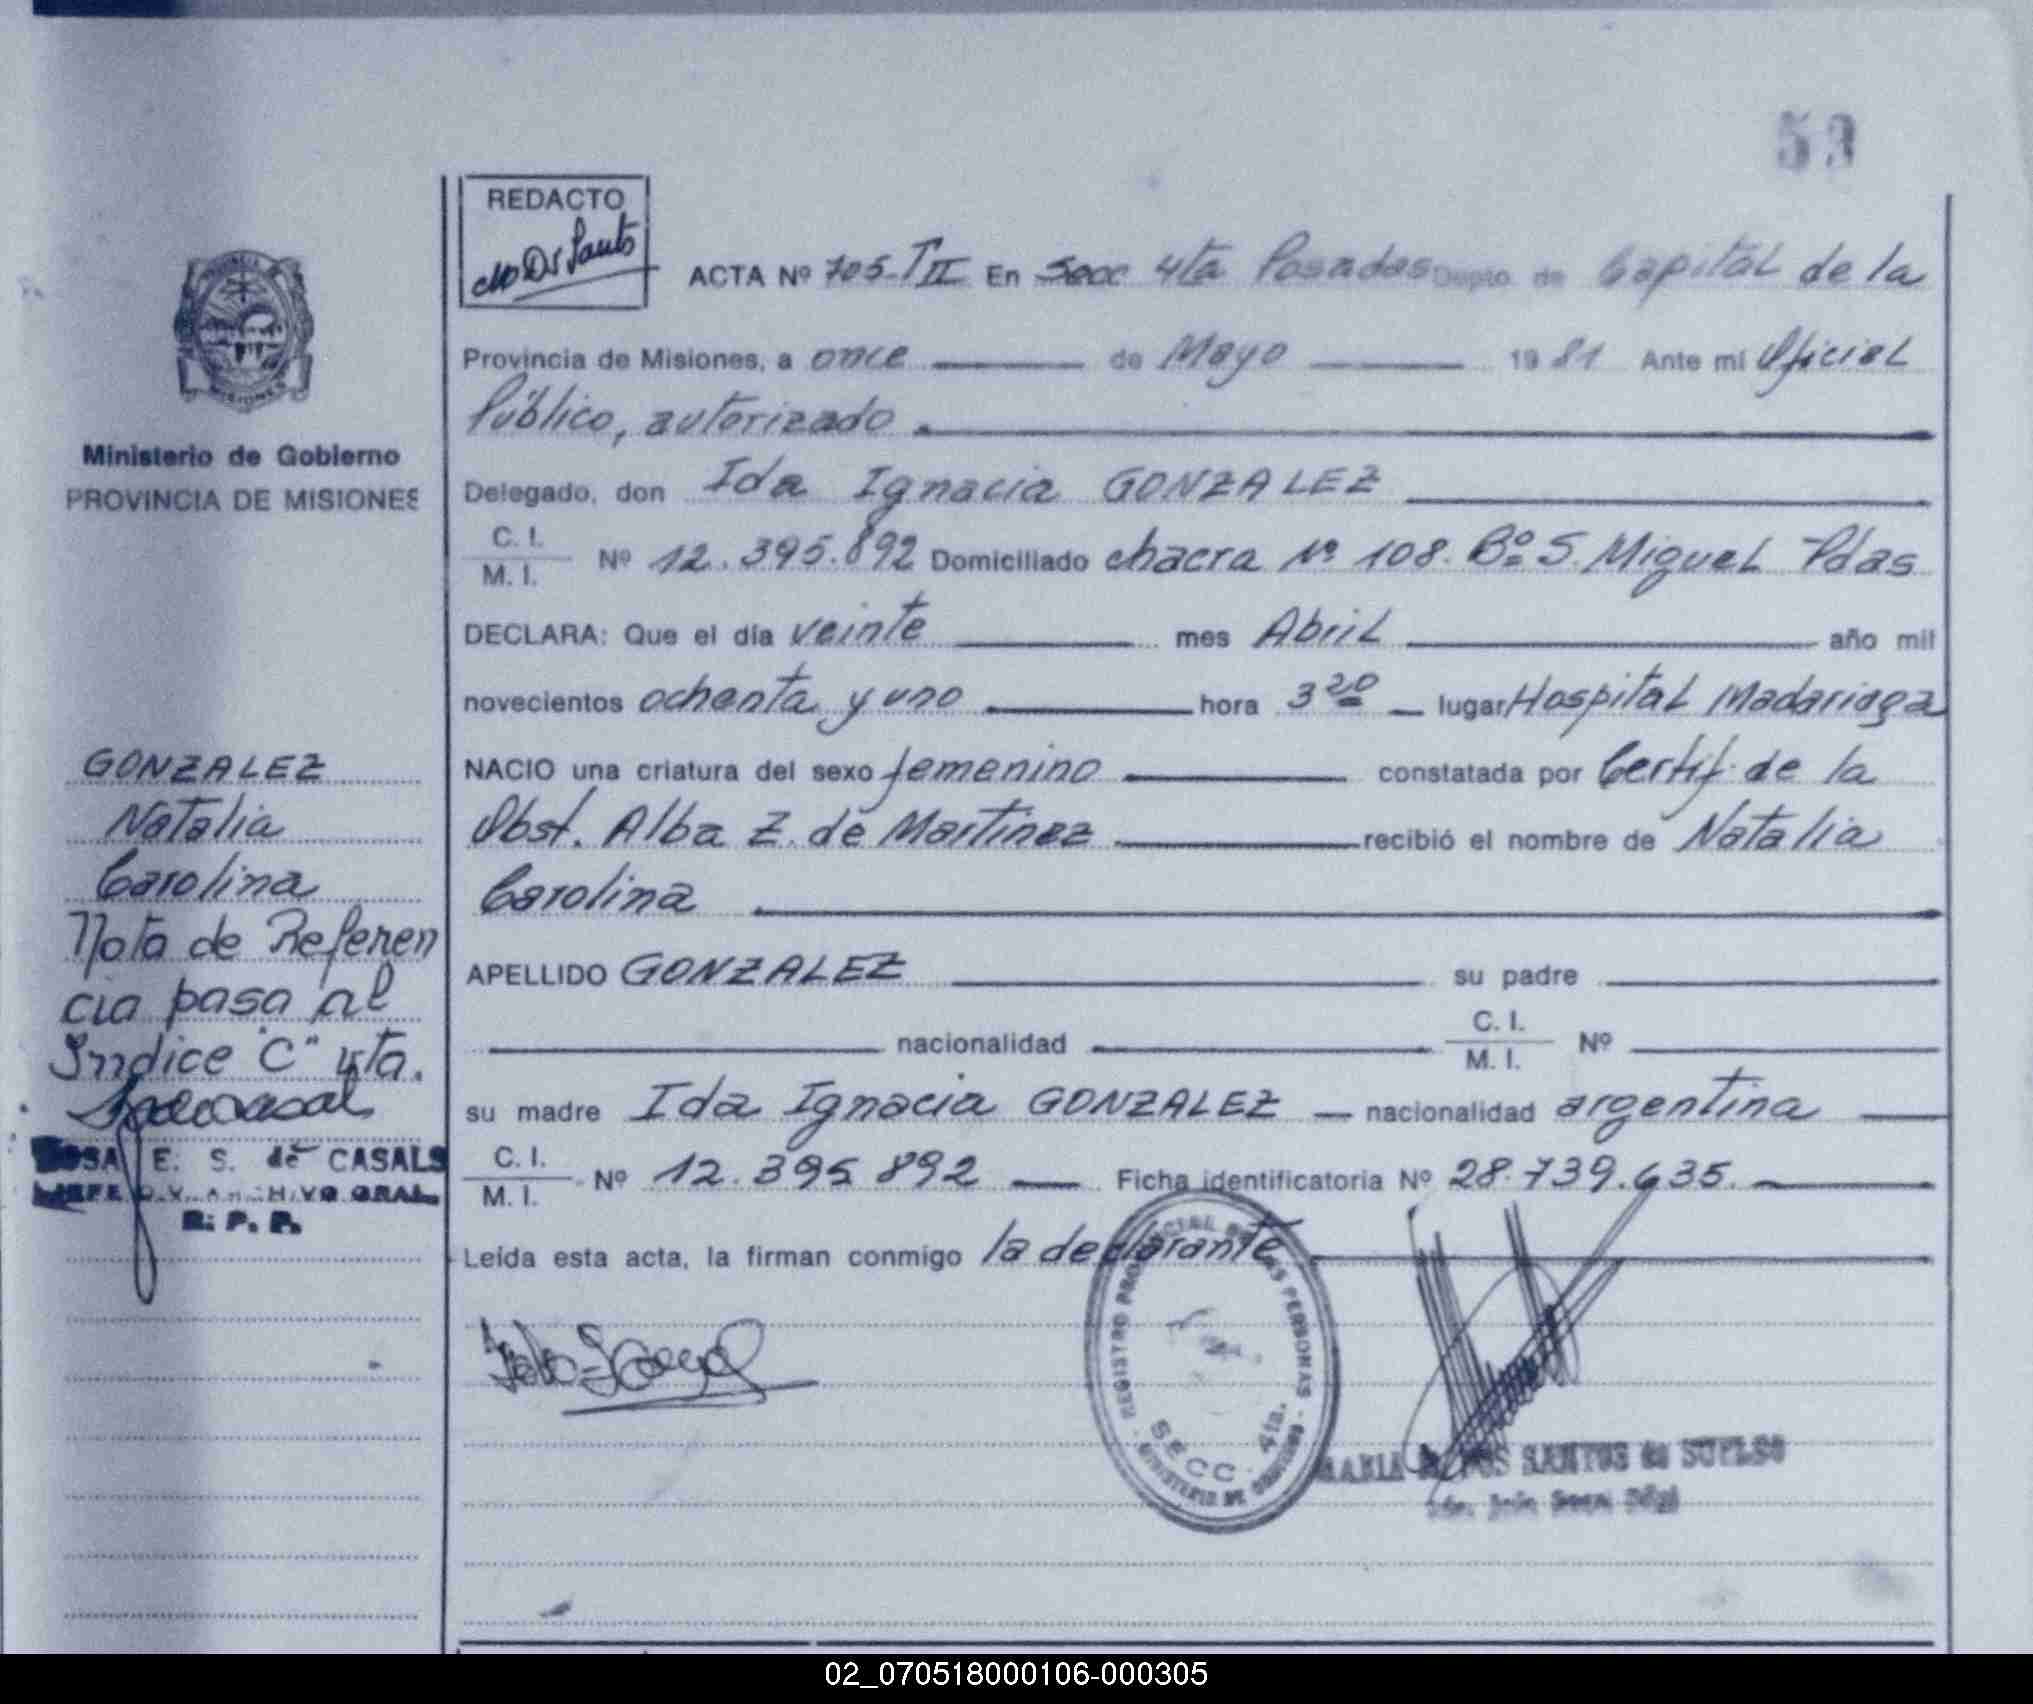 53
REDACTO
M Ds Santos
ACTA Nº 705-TII En Secc 4ta Posadas Dapto. de Capital de la
Provincia de Misiones, a once de Mayo 1981 Ante mi Oficial
Público, autorizado
Ministerio de Gobierno
PROVINCIA DE MISIONES
Delegado, don Ida Ignacia GONZALEZ
C. I.
M. I. Nº 12.395.892 Domiciliado chacra Nº 108. Bº S. Miguel Pdas
DECLARA: Que el día veinte mes Abril año mil
novecientos ochenta y uno hora 3 20 lugar Hospital Madariaga
NACIO una criatura del sexo femenino constatada por Certif. de la
Obst. Alba Z. de Martinez recibió el nombre de Natalia
Carolina
APELLIDO GONZALEZ su padre
nacionalidad C. I.
M. I. Nº
su madre Ida Ignacia GONZALEZ nacionalidad argentina
C. I.
M. I. Nº 12.395.892 Ficha identificatoria Nº 28.739.635.
Leída esta acta, la firman conmigo la declarante
GONZALEZ
Natalia
Carolina
Nota de Referen
cia pasa al
Indice "C" 4ta.
ROSA E. S. de CASALS
R. P. P.
REGISTRO PROVINCIAL DE LAS PERSONAS
SECC. 4ta.
MINISTERIO DE GOBIERNO
MARIA DOS SANTOS de
02_070518000106-000305